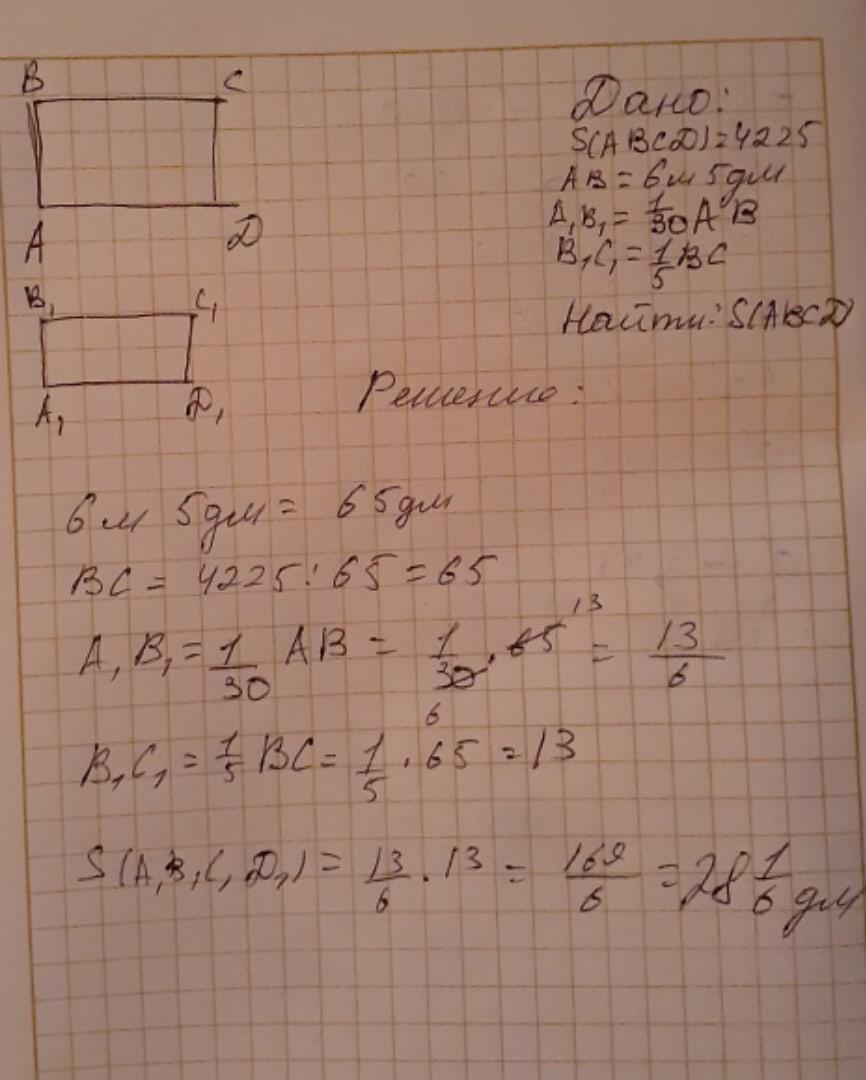 B C
A D
B₁ C₁
A₁ D₁
Дано:
S(ABCD)=4225
AB = 6м 5дм
A₁B₁ = 1/30 AB
B₁C₁ = 1/5 BC
Найти: S(ABCD)
Решение:
6м 5дм = 65дм
BC = 4225 : 65 = 65
A₁B₁ = 1/30 AB = 1/30 6 · 65 13 = 13/6
B₁C₁ = 1/5 BC = 1/5 · 65 = 13
S(A₁B₁C₁D₁) = 13/6 · 13 = 169/6 = 28 1/6 дм